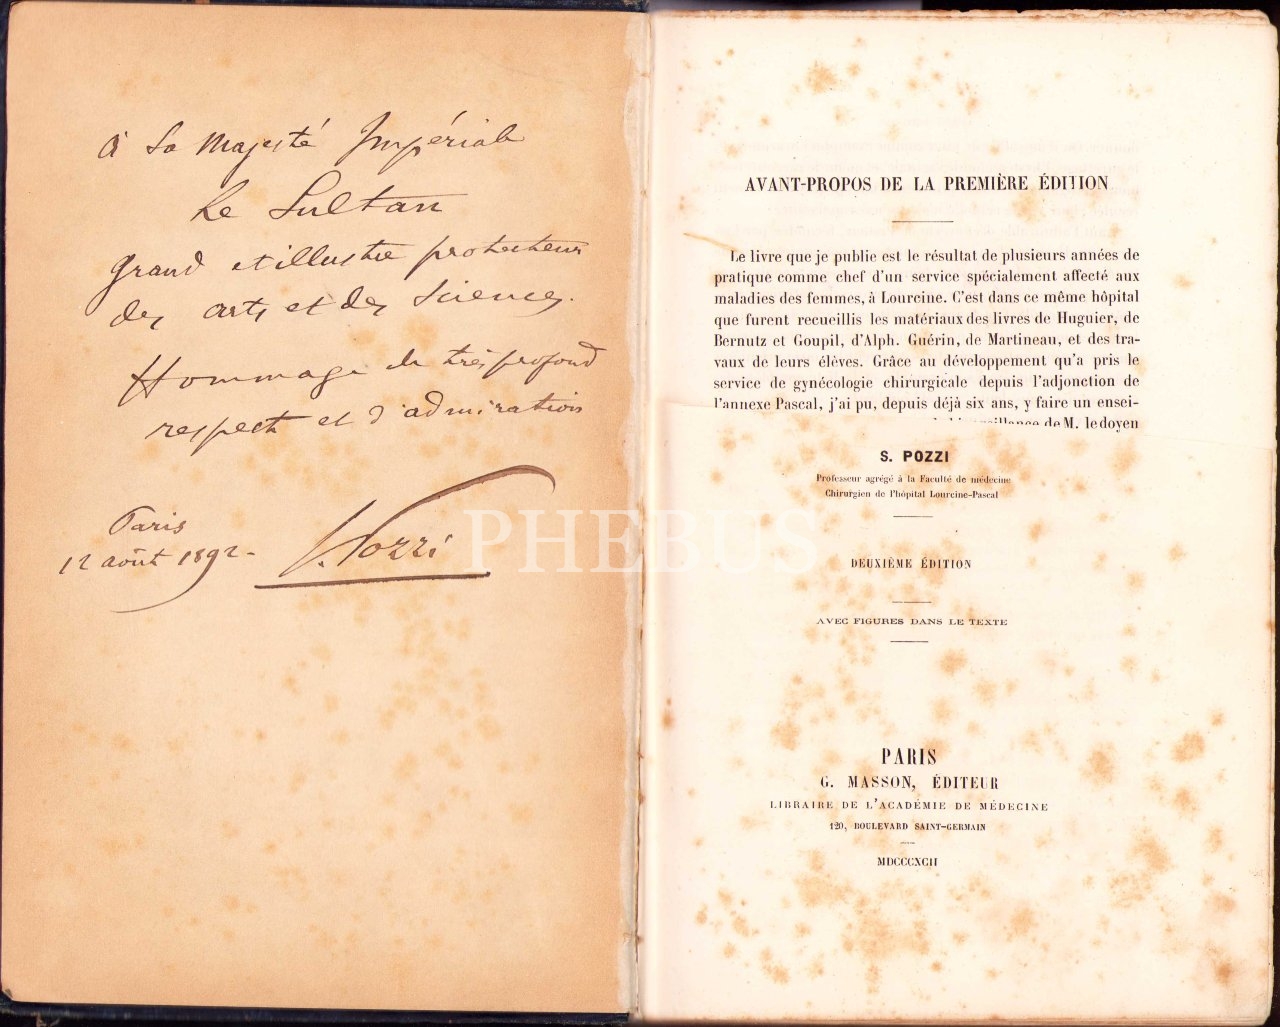 à Sa Majesté Impériale
Le Sultan
grand et illustre protecteur
des arts et des sciences.
Hommage de très profond
respect et d'admiration
Paris
12 août 1892-
S. Pozzi
PHEBUS
AVANT-PROPOS DE LA PREMIÈRE ÉDITION
Le livre que je publie est le résultat de plusieurs années de
pratique comme chef d'un service spécialement affecté aux
maladies des femmes, à Lourcine. C'est dans ce même hôpital
que furent recueillis les matériaux des livres de Huguier, de
Bernutz et Goupil, d'Alph. Guérin, de Martineau, et des tra-
vaux de leurs élèves. Grâce au développement qu'a pris le
service de gynécologie chirurgicale depuis l'adjonction de
l'annexe Pascal, j'ai pu, depuis déjà six ans, y faire un ensei-
de M. le doyen
S. POZZI
Professeur agrégé à la Faculté de médecine
Chirurgien de l'hôpital Lourcine-Pascal
DEUXIÈME ÉDITION
AVEC FIGURES DANS LE TEXTE
PARIS
G. MASSON, ÉDITEUR
LIBRAIRE DE L'ACADÉMIE DE MÉDECINE
120, BOULEVARD SAINT-GERMAIN
MDCCCXCII